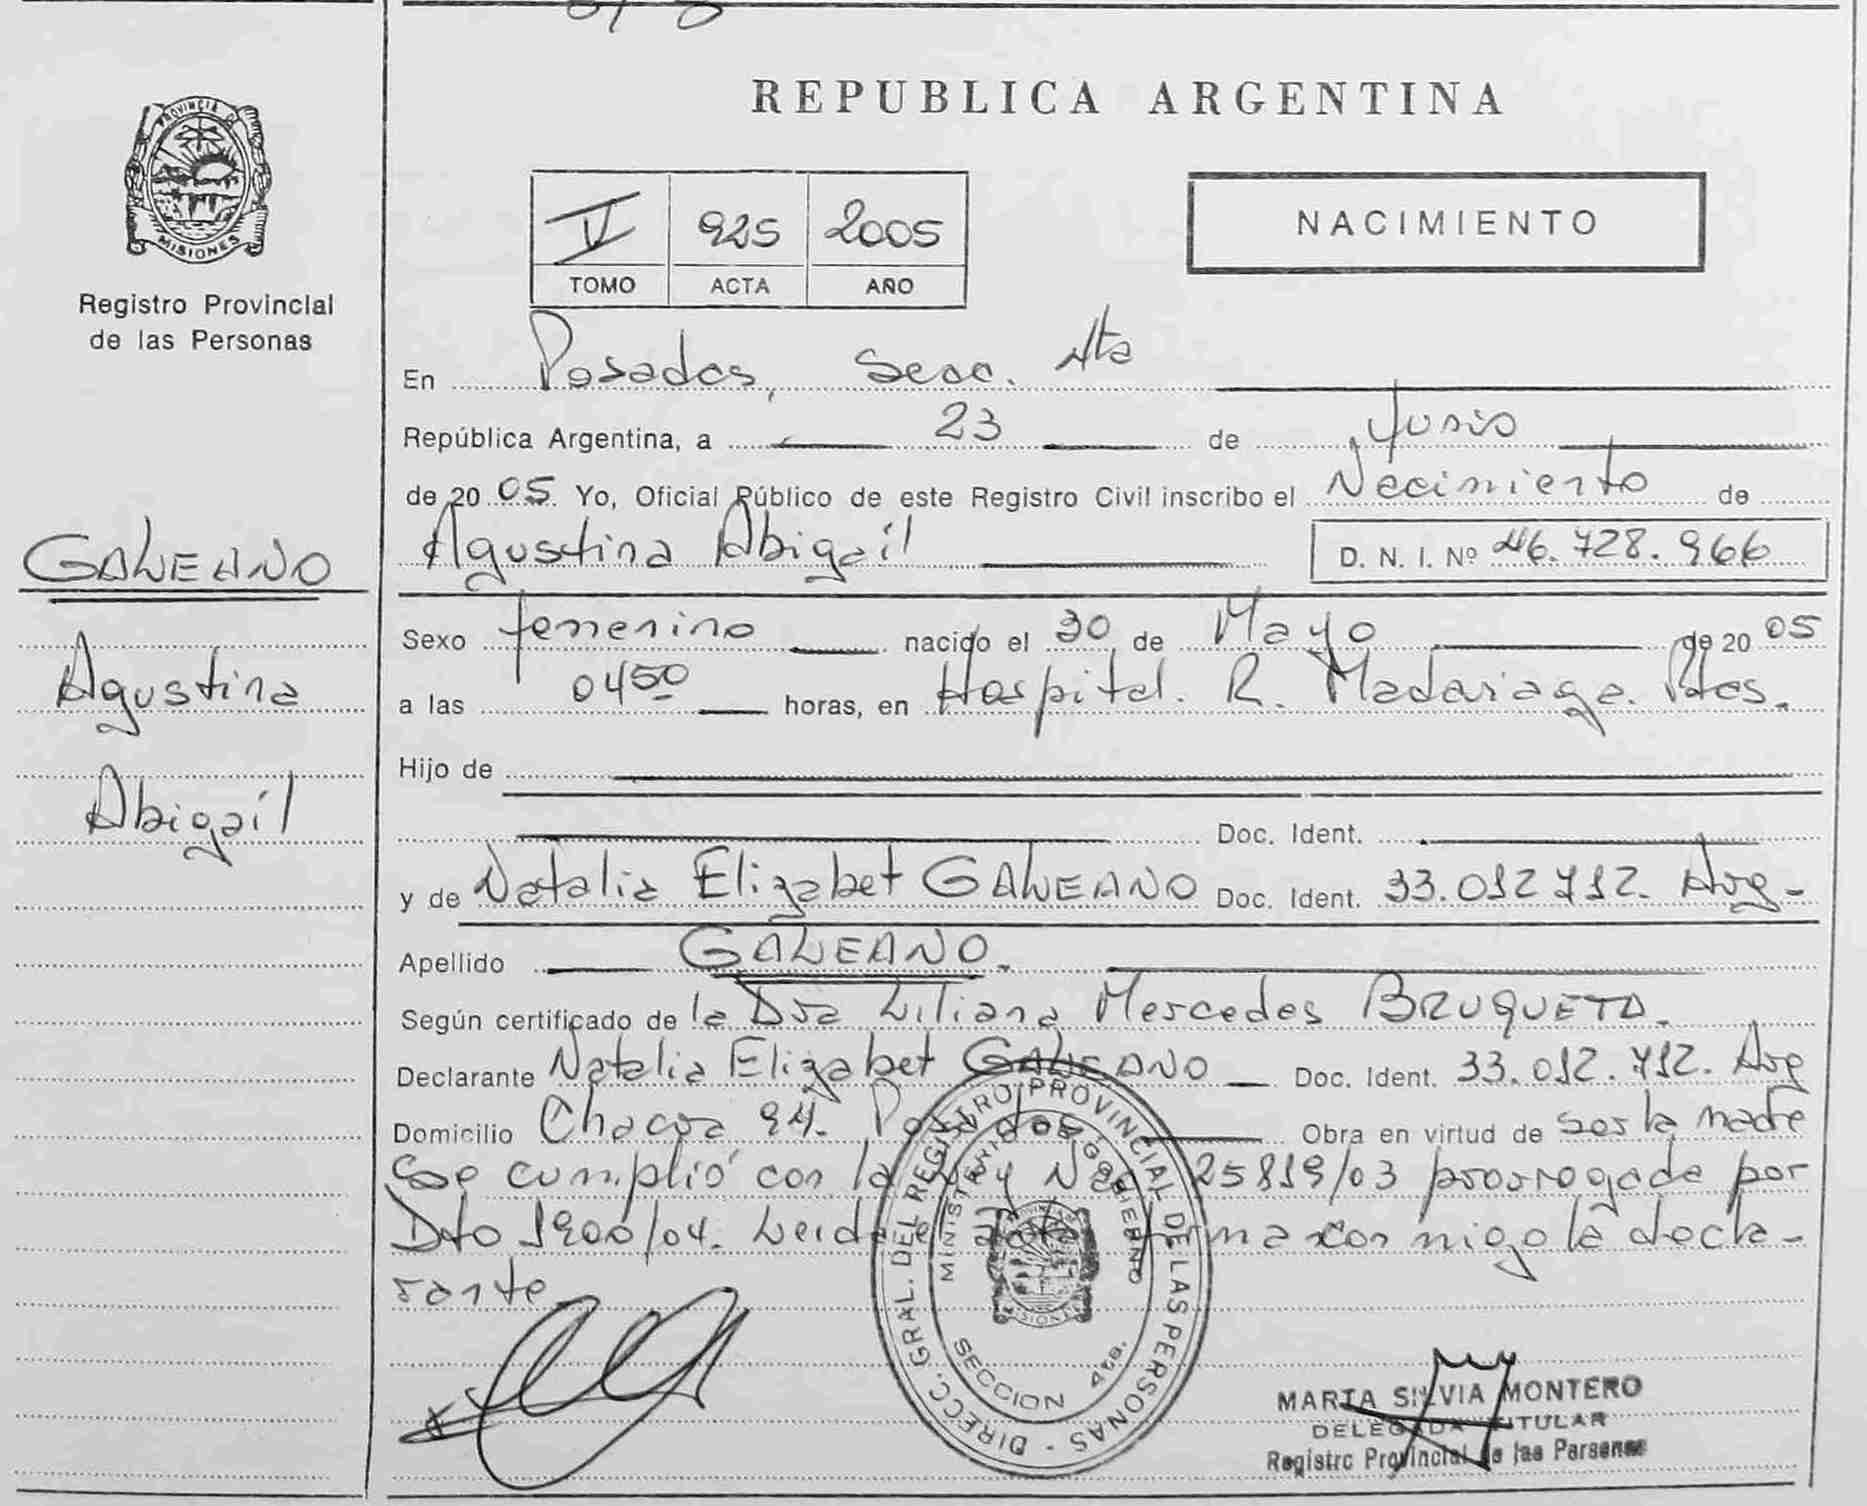 REPUBLICA ARGENTINA
PROVINCIA DE
MISIONES
Registro Provincial
de las Personas
V 925 2005
TOMO ACTA AÑO
NACIMIENTO
En Posadas, Secc. 4ta
República Argentina, a 23 de Junio
de 2005 Yo, Oficial Público de este Registro Civil inscribo el Nacimiento de
Agustina Abigaíl D. N. I. Nº 46.728.966
GALEANO
Agustina
Abigaíl
Sexo femenino nacido el 30 de Mayo de 2005
a las 0450 horas, en Hospital. R. Madariaga. Pdas.
Hijo de
Doc. Ident.
y de Natalia Elizabet GALEANO Doc. Ident. 33.012.712. Arg-
Apellido GALEANO.
Según certificado de la Dra Liliana Mercedes BRUQUETA.
Declarante Natalia Elizabet GALEANO Doc. Ident. 33.012.712. Arg
Domicilio Chacra 94. Posadas Obra en virtud de ser la madre
Se cumplió con la Ley Nac 25819/03 prorrogada por
Dto 1900/04. Leida el acta firma conmigo la decla-
rante
DIRECC. GRAL. DEL REGISTRO PROVINCIAL DE LAS PERSONAS -
MINISTERIO DE GOBIERNO
SECCION 4ta.
MARTA SILVIA MONTERO
DELEGADA TITULAR
Registro Provincial de las Personas